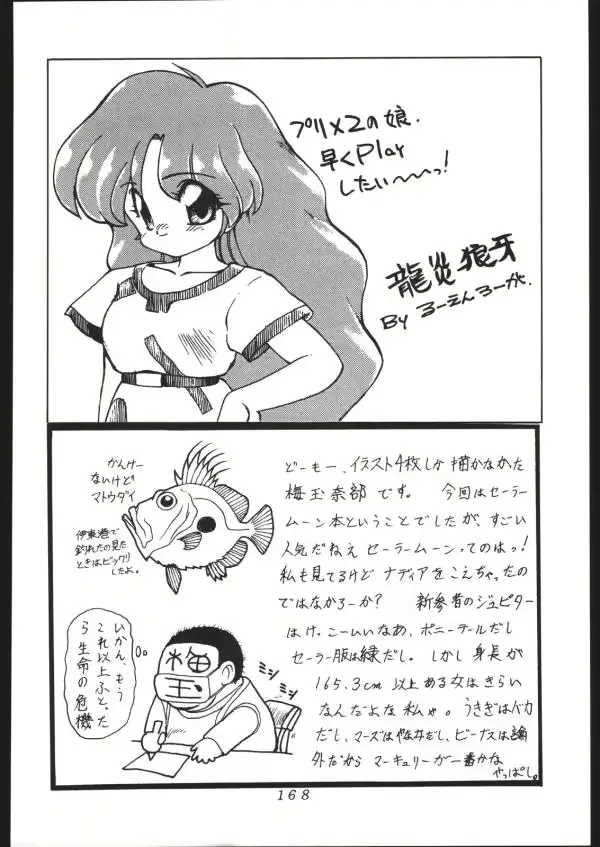 プリメ2の娘.
早くPlay
したい〜〜っ!
龍炎狼牙
By ろーえんろーが.
かんけー
ないけど
マトウダイ
伊東港で
釣れたの見た
ときはビックリ
したよ。
どーもー、イラスト4枚しか描かなかった
梅玉奈部です。 今回はセーラー
ムーン本ということでしたが、すごい
人気だねえ セーラームーンってのはっ!
私も見てるけど ナディアをこえちゃったの
ではなかろーか? 新参者のジュピター
はけ。こーいいなあ、ポニーテールだし
セーラー服は緑だし。しかし身長が
165.3cm以上ある女はきらい
なんだよな私ゃ。 うさぎはバカ
だし、マーズはやな女だし、ビーナスは論
外だから マーキュリーが一番かな
やっぱし。
いかん、もう
これ以上ふとった
ら生命の危機
梅
玉
168